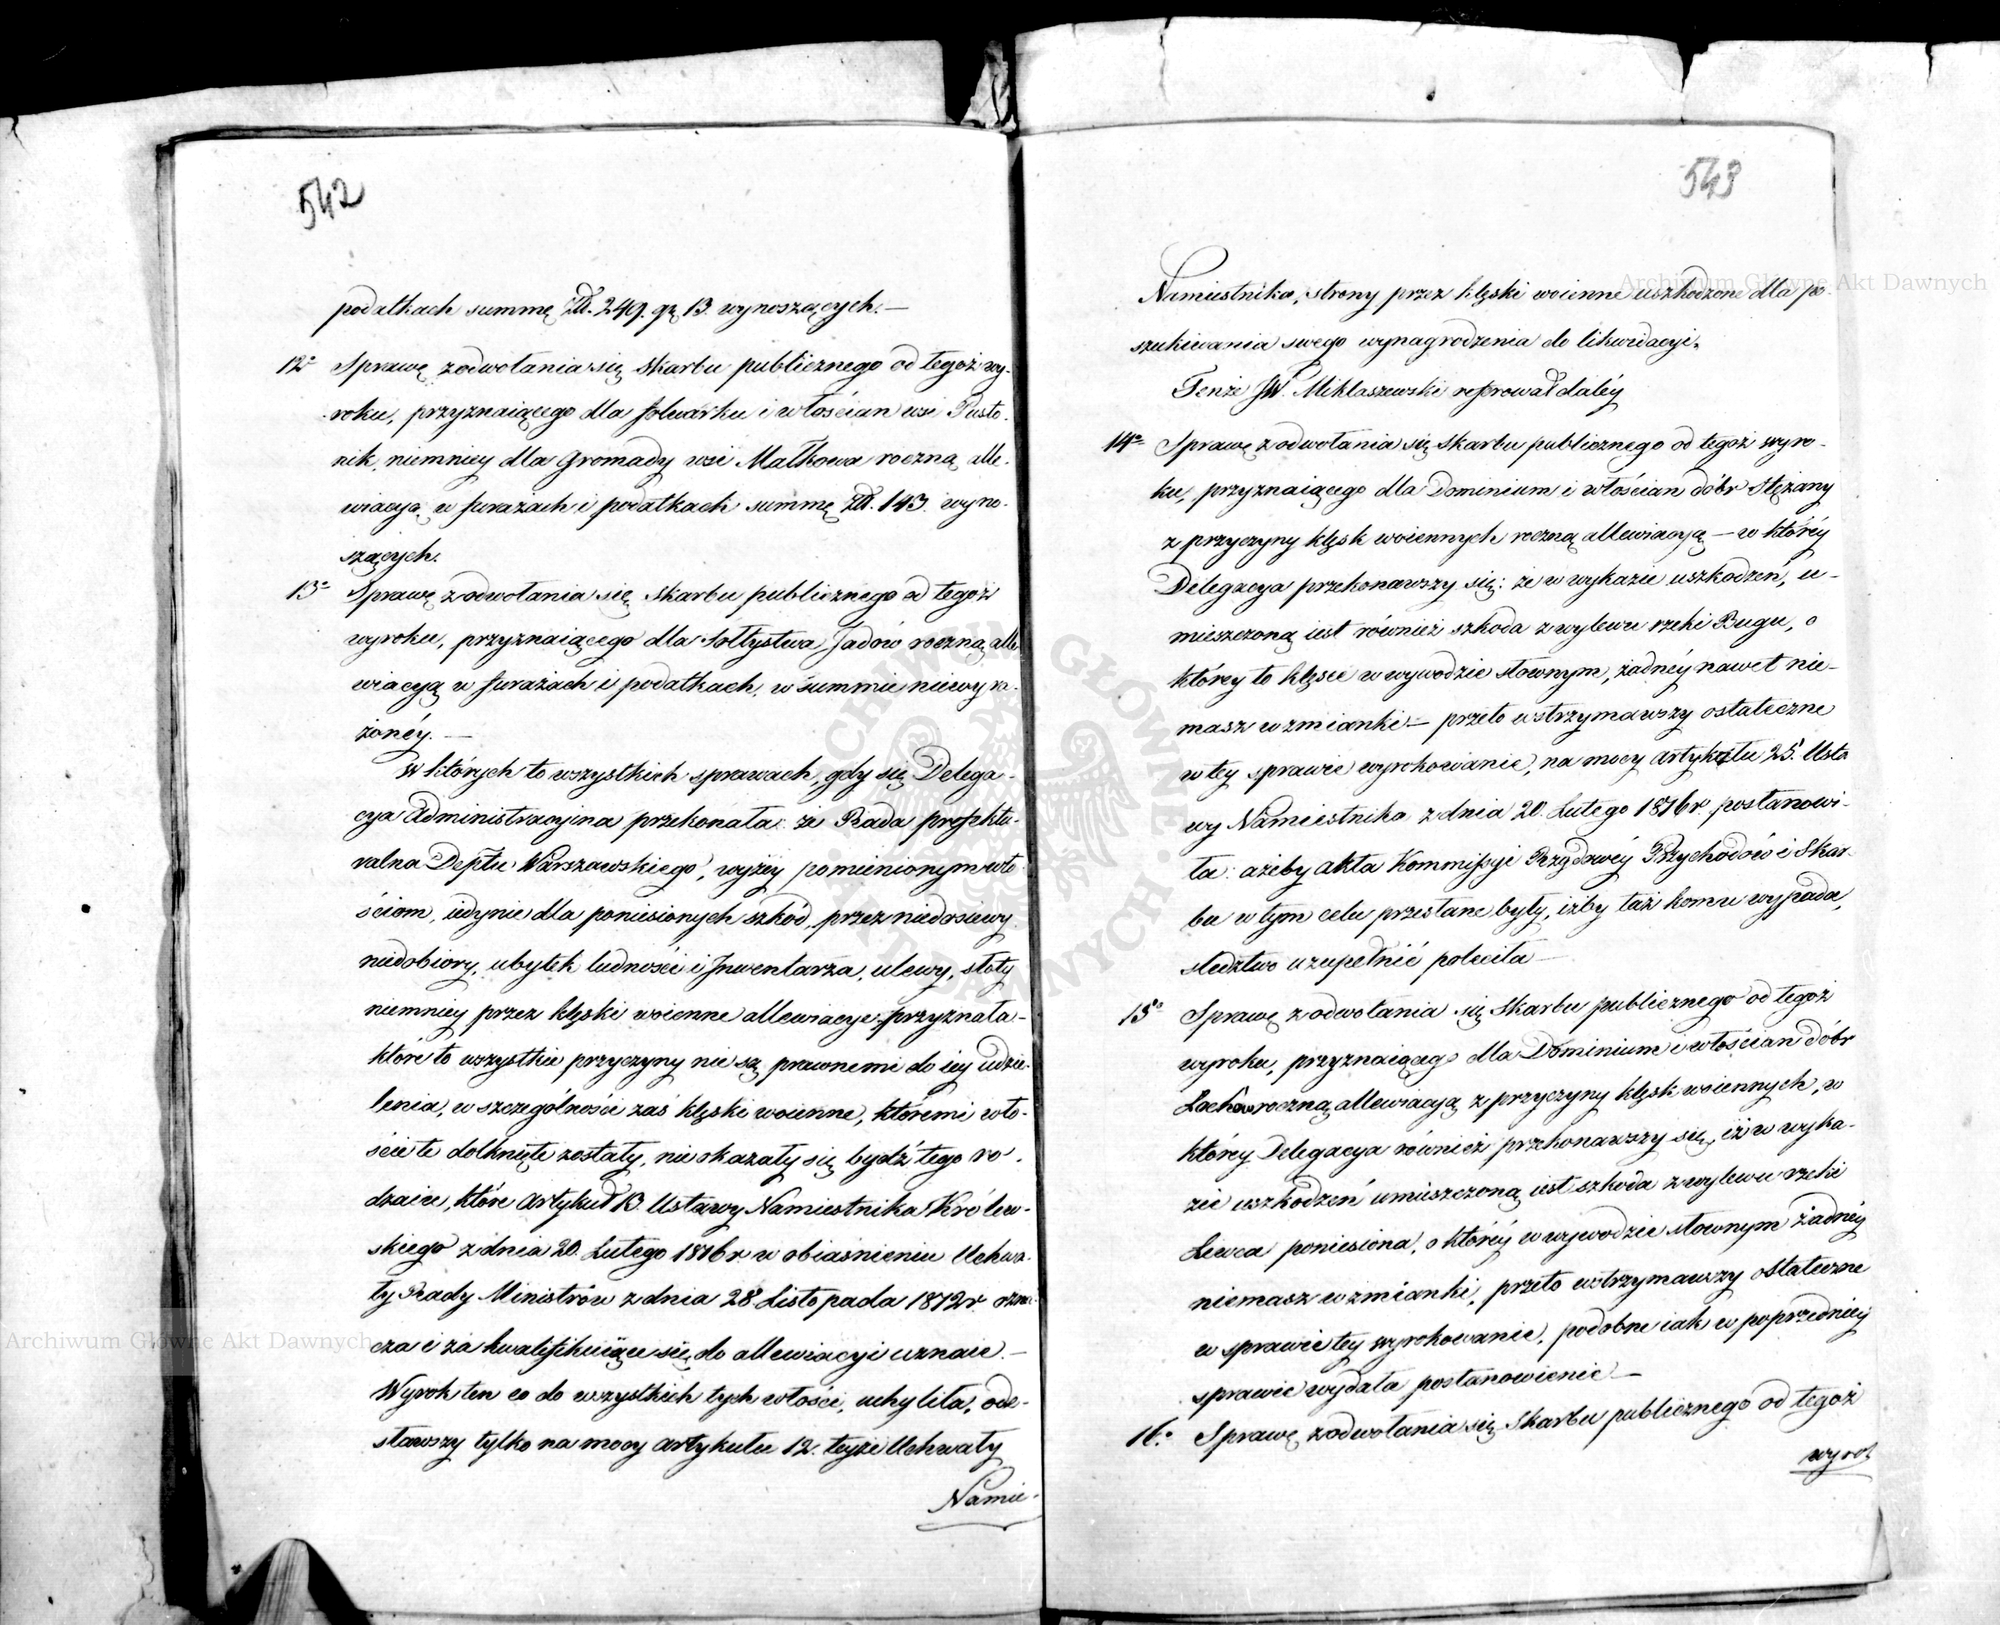 542
podatkach summę Złł. 249. gr. 13. wynoszących. —
12° Sprawę z odwołania się Skarbu publicznego od tegoż wy-
roku, przyznaiącego dla folwarku i włościan wsi Pusto-
nik, niemniey dla Gromady wsi Małkowa roczną alle-
wiacyą w furażach i podatkach summę Złł. 143. wyno-
szących.
13° Sprawę z odwołania się Skarbu publicznego od tegoż
wyroku, przyznaiącego dla Sołtystwa Jadów roczną alle-
wiacyą w furażach i podatkach, w summie niewyra-
żonéy. —
W których to wszystkich sprawach, gdy się Delega-
cya Administracyina przekonała: że Rada prefektu-
ralna Deptu Warszawskiego, wyżéy pomienionym wło-
ściom, iedynie dla poniesionych szkód, przez niedosiewy
niedobiory, ubytek ludności i Inwentarza, ulewy, słoty
niemniey przez klęski woienne allewiacye przyznała —
które to wszystkie przyczyny nie są prawnemi do iey udzie-
lenia, w szczególności zaś klęski woienne, któremi wło-
ście te dotknięte zostały, nie okazały się bydź tego ro-
dzaiu, które artykuł 13. Ustawy Namiestnika Królew-
skiego z dnia 20. Lutego 1816 r. w obiaśnieniu Uchwa-
ły Rady Ministrów z dnia 28. Listopada 1812 r ozna-
cza i za kwalifikuiące się do allewiacyi uznaie. —
Wyrok ten co do wszystkich tych włości, uchyliła, ode-
sławszy tylko na mocy artykułu 12. teyże Uchwały
Namie-
543
Namiestnika, strony przez klęski woienne uszkodzone dla po-
szukiwania swego wynagrodzenia do likwidacyi.
Tenże JW. Miklaszewski referował daléy
14° Sprawę z odwołania się Skarbu publicznego od tegoż wyro-
ku, przyznaiącego dla Dominium i włościan dóbr Stężany
z przyczyny klęsk woiennych roczną allewiacyą — w któréy
Delegacya przekonawszy się: że w wykazie uszkodzeń, u-
mieszczoną iest również szkoda z wylewu rzeki Bugu, o
którey to klęsce w wywodzie słownym, żadnéy nawet nie-
masz wzmianki — przeto wstrzymawszy ostateczne
w tey sprawie wyrokowanie, na mocy artykułu 25. Usta
wy Namiestnika z dnia 20. Lutego 1816 r. postanowi-
ła: ażeby akta Kommissyi Rządowéy Przychodów i Skar-
bu w tym celu przesłane były, iżby taż komu wypada,
śledztwo uzupełnić poleciła —
15° Sprawę z odwołania się Skarbu publicznego od tegoż
wyroku, przyznaiącego dla Dominium i włościan dóbr
Łochów roczną allewiacyą z przyczyny klęsk woiennych, w
którey Delegacya również przekonawszy się, iż w wyka-
zie uszkodzeń umieszczoną iest szkoda z wylewu rzeki
Liwca poniesiona, o któréy w wywodzie słownym żadnéy
niemasz wzmianki, przeto wstrzymawszy ostateczne
w sprawie tey wyrokowanie, podobne iak w poprzedniey
sprawie wydała postanowienie —
16° Sprawę z odwołania się Skarbu publicznego od tegoż
wyrok
Archiwum Główne Akt Dawnych
Archiwum Główne Akt Dawnych
ARCHIWUM GŁÓWNE AKT DAWNYCH